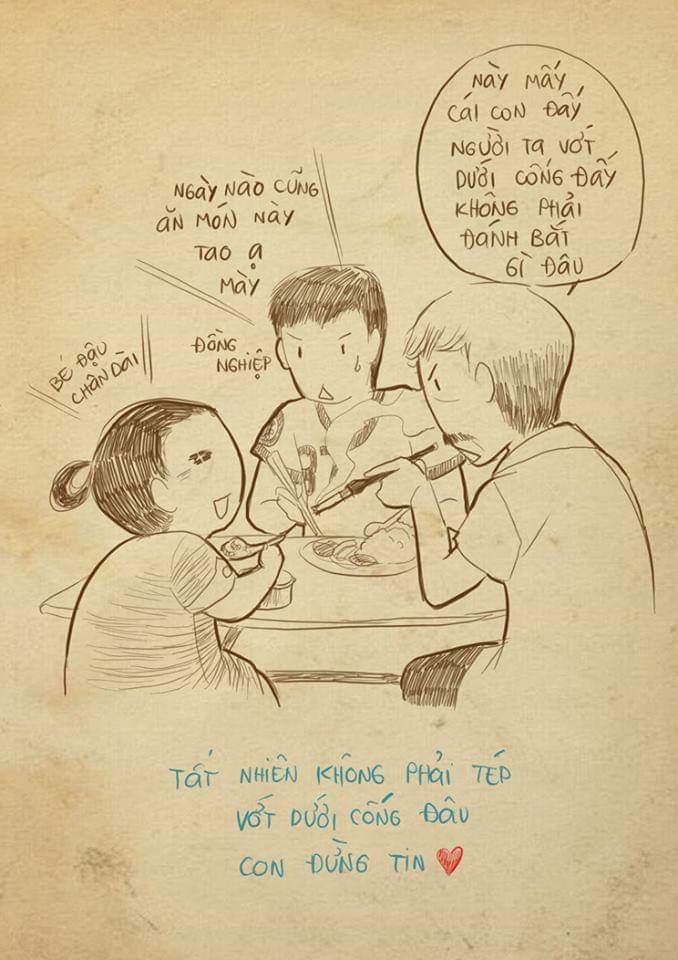 NÀY MẤY
CÁI CON ĐẤY
NGƯỜI TA VỚT
DƯỚI CỐNG ĐẤY
KHÔNG PHẢI
ĐÁNH BẮT
GÌ ĐÂU
NGÀY NÀO CŨNG
ĂN MÓN NÀY
TAO Ạ
MÀY
ĐỒNG
NGHIỆP
BÉ ĐẬU
CHÂN DÀI
TẤT NHIÊN KHÔNG PHẢI TÉP
VỚT DƯỚI CỐNG ĐÂU
CON ĐỪNG TIN